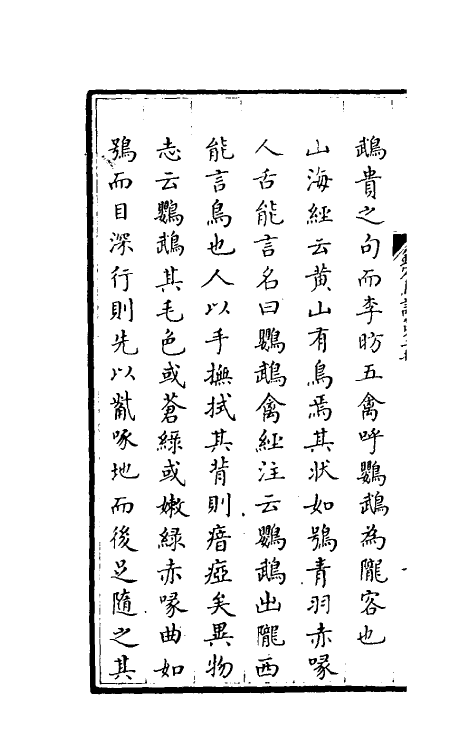 鵡貴之句而李昉五禽呼鸚鵡為隴客也
山海經云黄山有鳥焉其状如鴞青羽赤喙
人舌能言名曰鸚鵡禽經注云鸚鵡出隴西
能言鳥也人以手撫拭其背則瘖瘂矣異物
志云鸚鵡其毛色或蒼綠或嫩綠赤喙曲如
鴞而目深行則先以觜啄地而後足隨之其